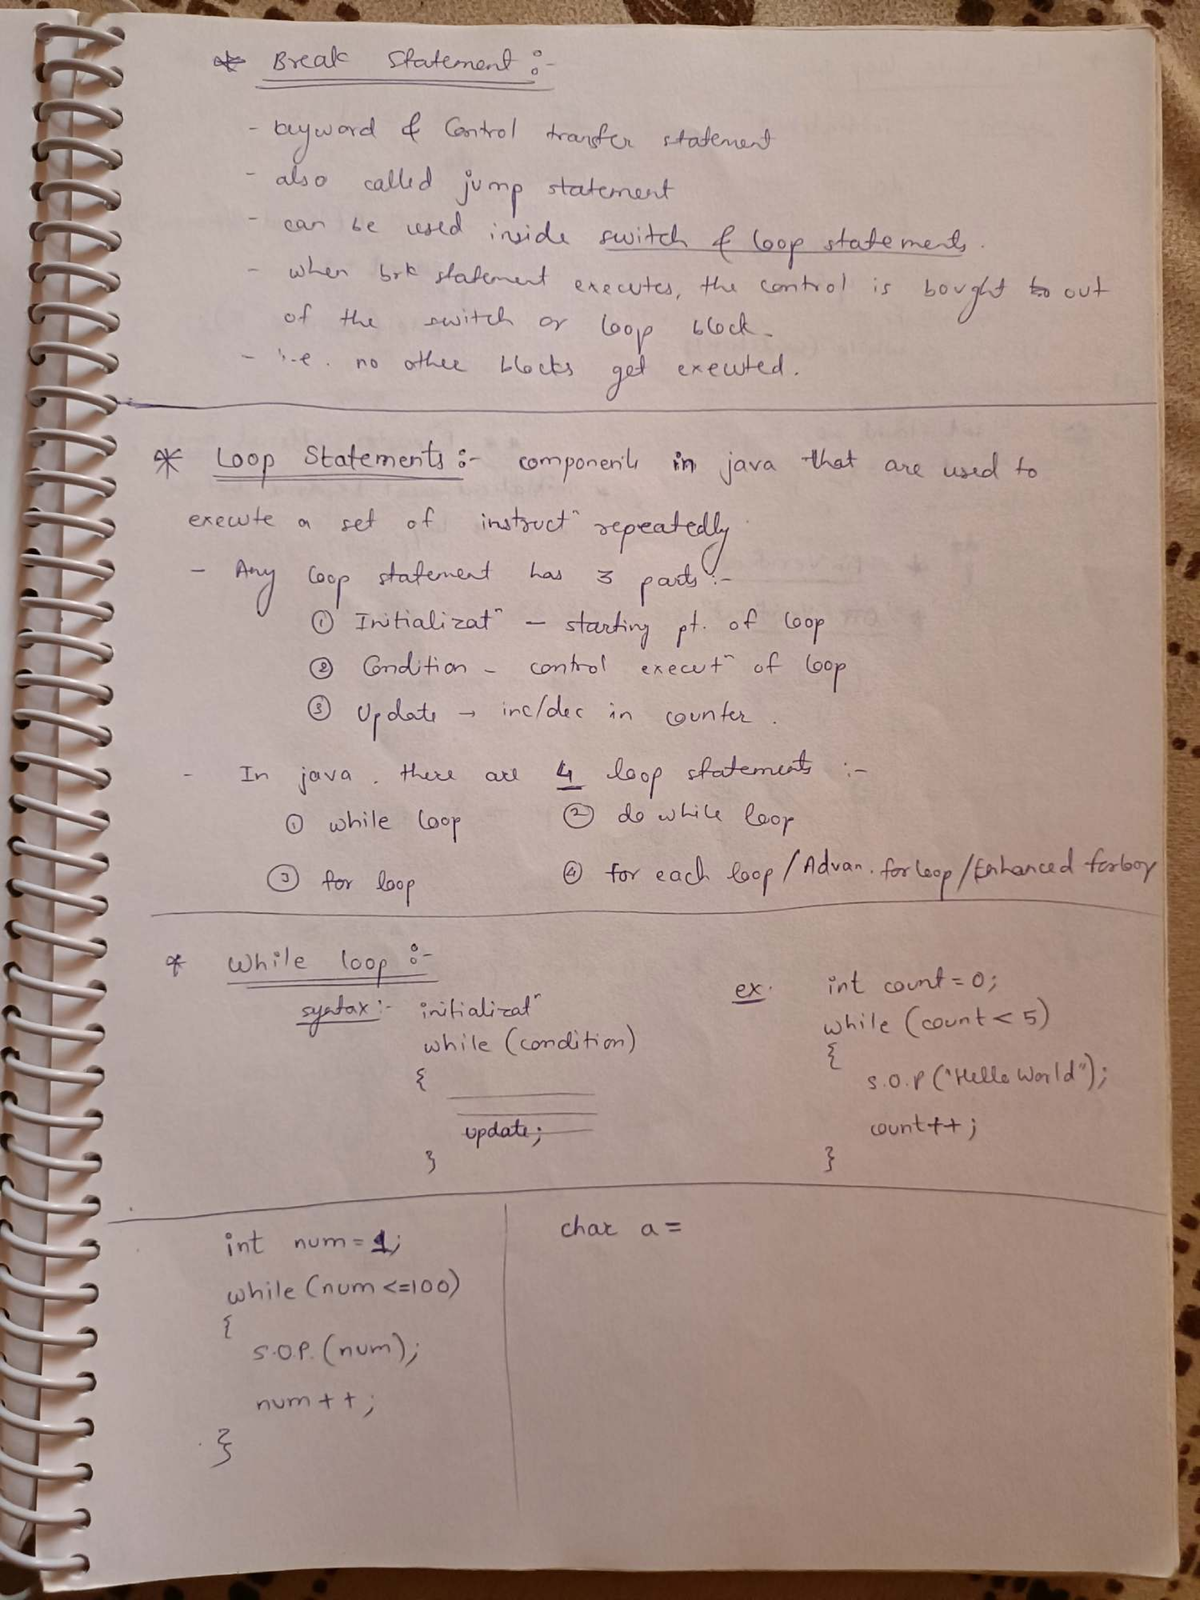 * Break Statement :-
- keyword & Control transfer statement
- also called jump statement
- can be used inside switch & loop statements.
- when brk statement executes, the control is bought to out
of the switch or loop block.
- i.e. no other blocks get executed.
* Loop Statements :- components in java that are used to
execute a set of instructⁿ repeatedly
- Any loop statement has 3 parts :-
① Initializatⁿ - starting pt. of loop
② Condition - control executⁿ of loop
③ Update → inc/dec in counter.
- In java, there are 4 loop statements :-
① while loop ② do while loop
③ for loop ④ for each loop / Advan. for loop / Enhanced forloop
* While loop :-
syntax :- initializatⁿ
while (condition)
{
update;
}
ex. int count = 0;
while (count < 5)
{
S.O.P ("Hello World");
count++;
}
int num = 1;
while (num <=100)
{
S.O.P. (num);
num ++;
}
char a =